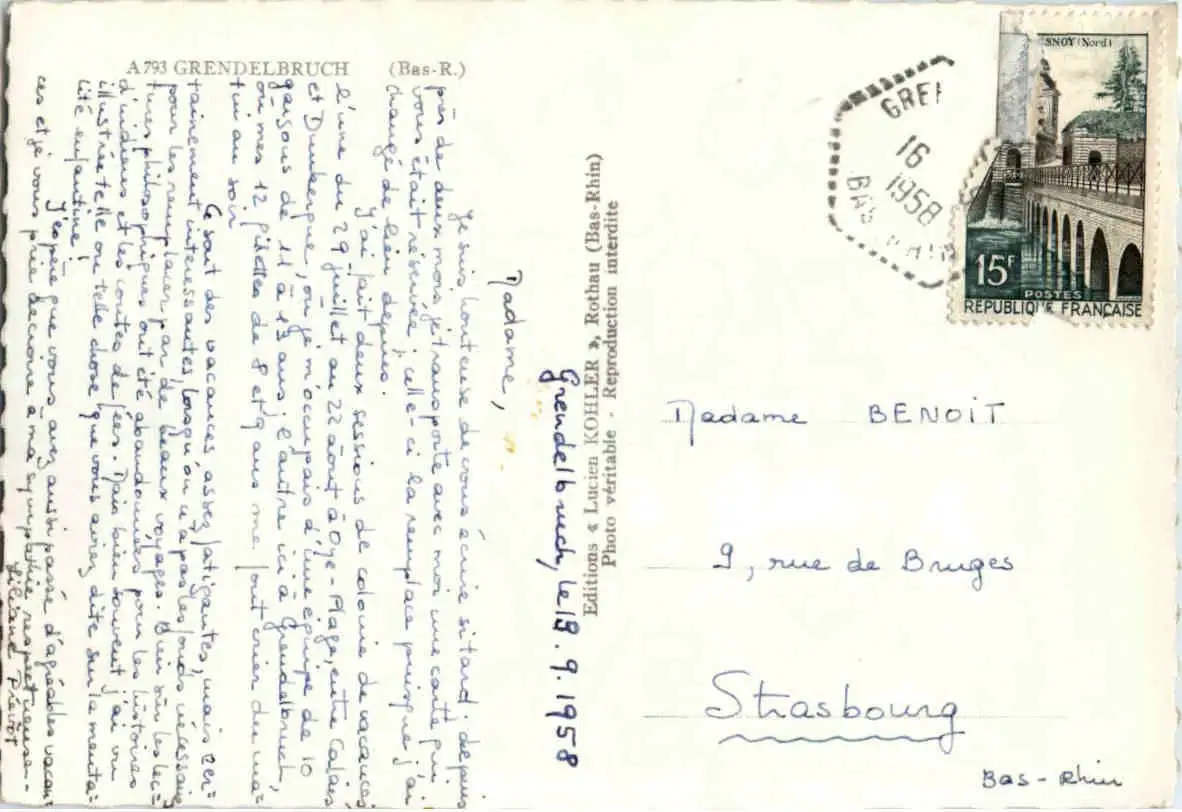 A 793 GRENDELBRUCH (Bas-R.)
Grendelbruch, le 19.9.1958
Madame,
Je suis honteuse de vous écrire si tard : depuis
près de deux mois, je transporte avec moi une carte qui
vous était réservée ; celle-ci la remplace puisque j'ai
changé de lieu depuis.
J'ai fait deux sessions de colonie de vacances
l'une du 29 juillet au 22 août à Oye-Plage, entre Calais
et Dunkerque, où je m'occupais d'une équipe de 10
garçons de 11 à 13 ans ; l'autre ici à Grendelbruch,
où mes 12 fillettes de 8 et 9 ans me font crier du ma=
tin au soir.
Ce sont des vacances assez fatigantes, mais cer=
tainement intéressantes, lorsqu'on n'a pas les fonds nécessaires
pour les remplacer par de beaux voyages. Bien sûr les lec=
tures philosophiques ont été abandonnées pour les histoires
d'indiens et les contes de fées. Mais bien souvent j'ai vu
illustrée telle ou telle chose que vous aviez dite sur la menta=
lité enfantine !
J'espère que vous avez aussi passé d'agréables vacan=
ces et je vous prie de croire à ma sympathie respectueuse.
Liliane
Editions « Lucien KOHLER », Rothau (Bas-Rhin)
Photo véritable - Reproduction interdite
GREN
16
1958
BAS RHIN
SNOY (Nord)
15F
POSTES
RÉPUBLIQUE FRANÇAISE
Madame BENOIT
9, rue de Bruges
Strasbourg
Bas-Rhin